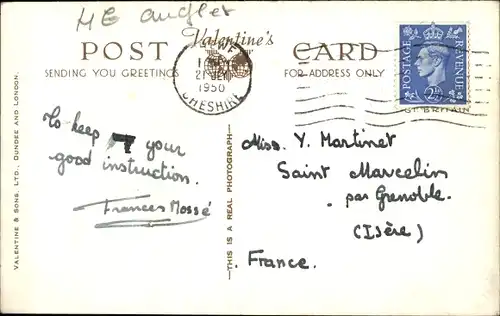 ME angler
Valentine's
POST CARD
SENDING YOU GREETINGS
FOR ADDRESS ONLY
1950
CHESHIRE
POSTAGE
REVENUE
2½D
GT BRITAIN
to keep your
good instruction.
Frances Mossé
Miss. Y. Martinet
Saint Marcelin
par Grenoble.
(Isère)
France.
THIS IS A REAL PHOTOGRAPH
VALENTINE & SONS, LTD., DUNDEE AND LONDON.